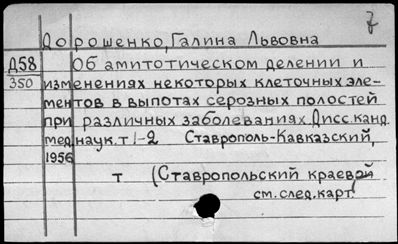 Дорошенко, Галина Львовна
Д58 Об амитотическом делении и
350 изменениях некоторых клеточных эле-
ментов в выпотах серозных полостей
при различных заболеваниях. Дисс. канд.
мед. наук. т 1-2 Ставрополь-Кавказский,
1956
т (Ставропольский краевой
см. след. карт.